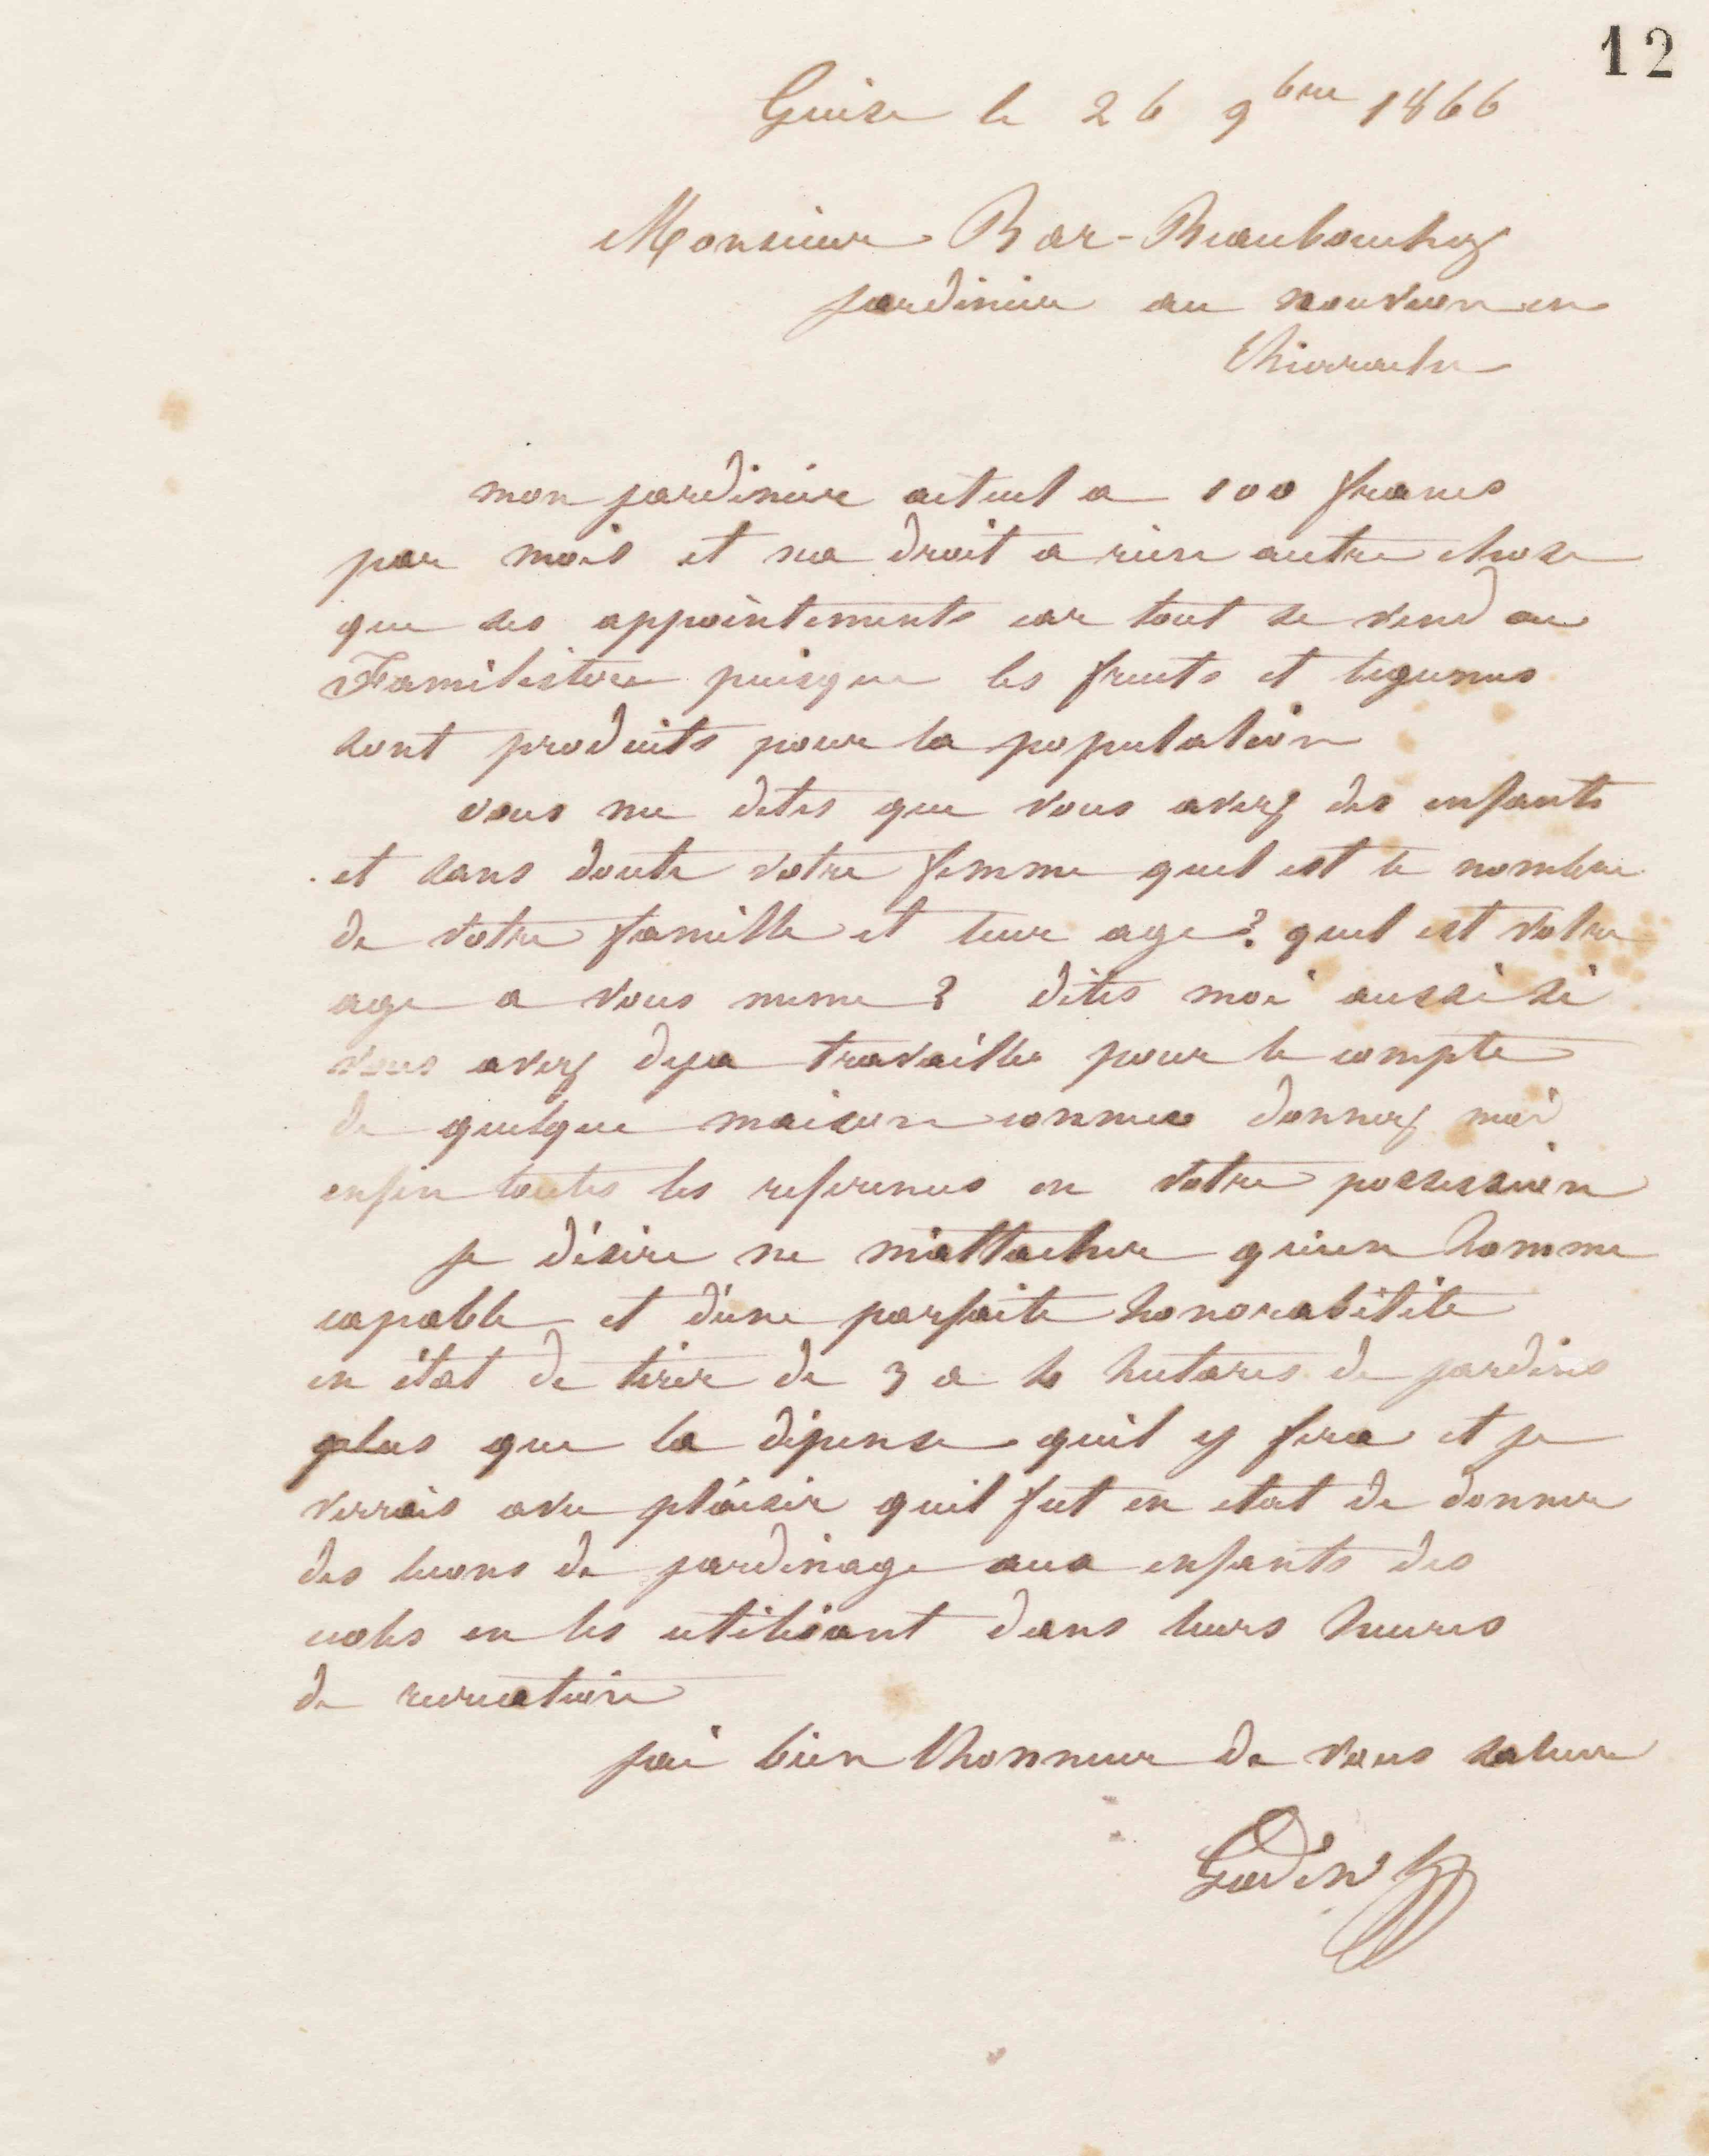 12
Guise le 26 9bre 1866
Monsieur Bar-Beaubouchez
jardinier au nouvion en
thierache
mon jardinier actuel a 100 francs
par mois et na droit a rien autre chose
que ses appointements car tout se vend au
Familistere puisque les fruits et legumes
sont produits pour la population
vous me dites que vous avez des enfants
et sans doute votre femme quel est le nombre
de votre famille et leur age ? quel est votre
age a vous meme ? dites moi aussi si
vous avez deja travaillé pour le compte
de quelque maison connue donnez moi
enfin toutes les references en votre possession
je désire ne m'attacher qu'un homme
capable et d'une parfaite honorabilité
en état de tirer de 3 a 4 hectares de jardins
plus que la dépense quil y fera et je
verrais avec plaisir quil fut en etat de donner
des lecons de jardinage aux enfants des
ecoles en les utilisant dans leurs heures
de recreation
jai bien lhonneur de vous saluer
Godin